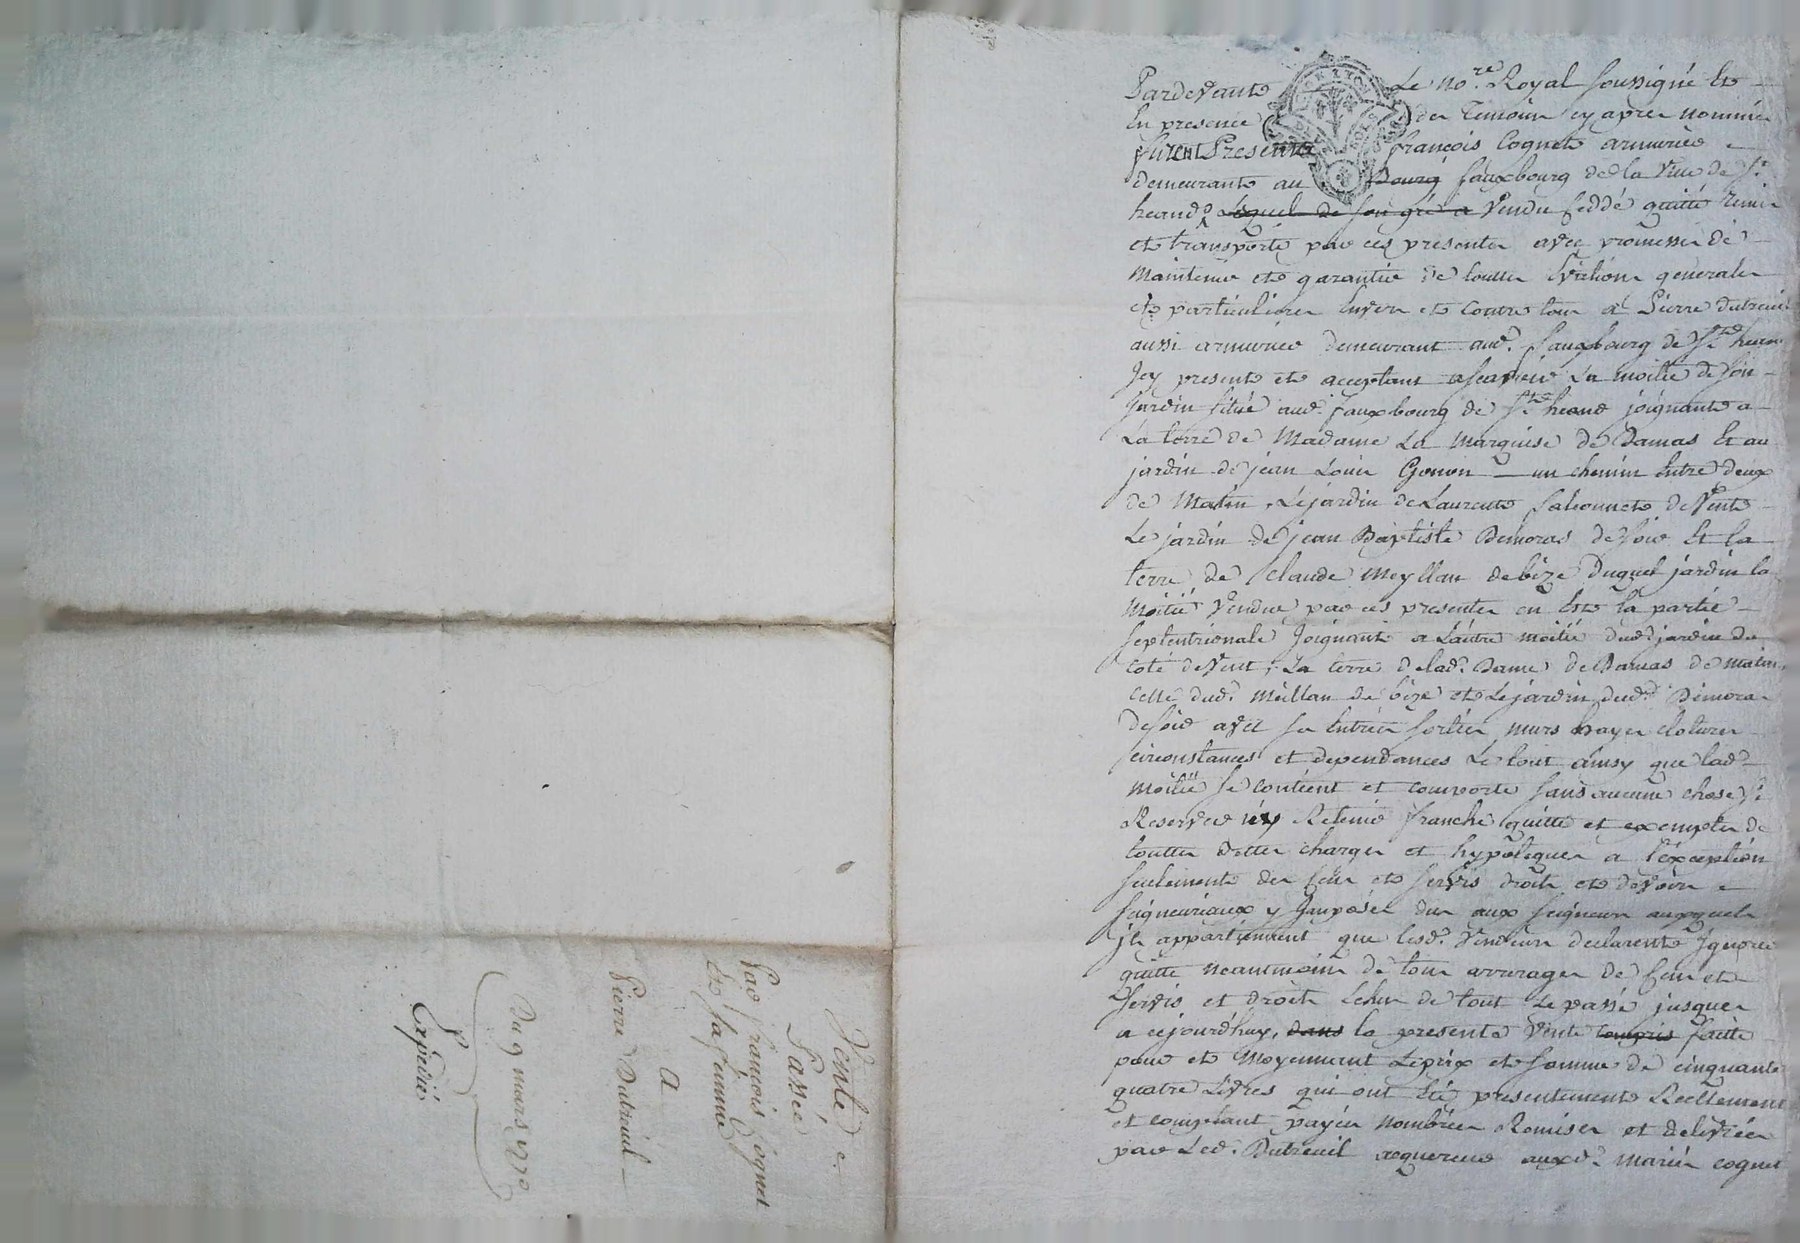 Pardevant Le no.re Royal soussigné Et
En presence des Temoins cy apres nommés
furent Presents françois Cognet armurier
demeurant au Bourg fauxbourg de la Ville de St
heand lequel de son gré a Vendu ceddé quitté remis
et transporté par ces presentes avec promesse de
Maintenir et garantir de touttes Evictions generales
et particulieres Envers et Contre tous a Pierre dutreuil
aussi armurier demeurant aud. fauxbourg de St heand
Jcy present et acceptant asçavoir La moitié de son
Jardin situé aud. fauxbourg de St heand joignant a
La terre de Madame La Marquise de Damas Et au
jardin de jean Louis Gonon un chemin Entre deux
de Matin, Le jardin de Laurent de Vent
Le jardin de jean Baptiste Dimoras de soir Et la
terre de Claude Meyllan de bize Duquel jardin la
Moitié Vendue par ces presentes en Est la partie
septentrionale Joignant a L'autre moitié dud. jardin du
coté de Vent, La terre de lad. Dame de Damas de matin,
celle dud. Meillan de bize et Le jardin dud. Dimoras
de soir avec ses Entrées sorties murs hayes clotures
circonstances et dependances Le tout ainsy que lad.
Moitié se contient et comporte sans aucune chose se
Reserver ny Retenir franche quitte et exempte de
touttes dettes charges et hypoteques a l'exception
seulement des cens et servis droits et devoirs
seigneuriaux y Jmposés dus aux seigneurs auxquels
jls appartiennent que lesd. Vendeurs declarent Jgnorer
quitte neantmoins de tous arrerages de cens et
servis et droits Echus de tout Le passé jusques
a cejourd'huy, dans la presente Vente compris faitte
pour et Moyennant Le prix et somme de cinquante
quatre Livres qui ont Eté presentement Reellement
et comptant payés Nombrées Remises et delivrées
par Led. Dutreuil acquereur auxd. Mariés cognet
Vente
Passée
Par françois Cognet
Et sa femme
A
Pierre Dutreuil
Du 9 mars 1770
Expedié